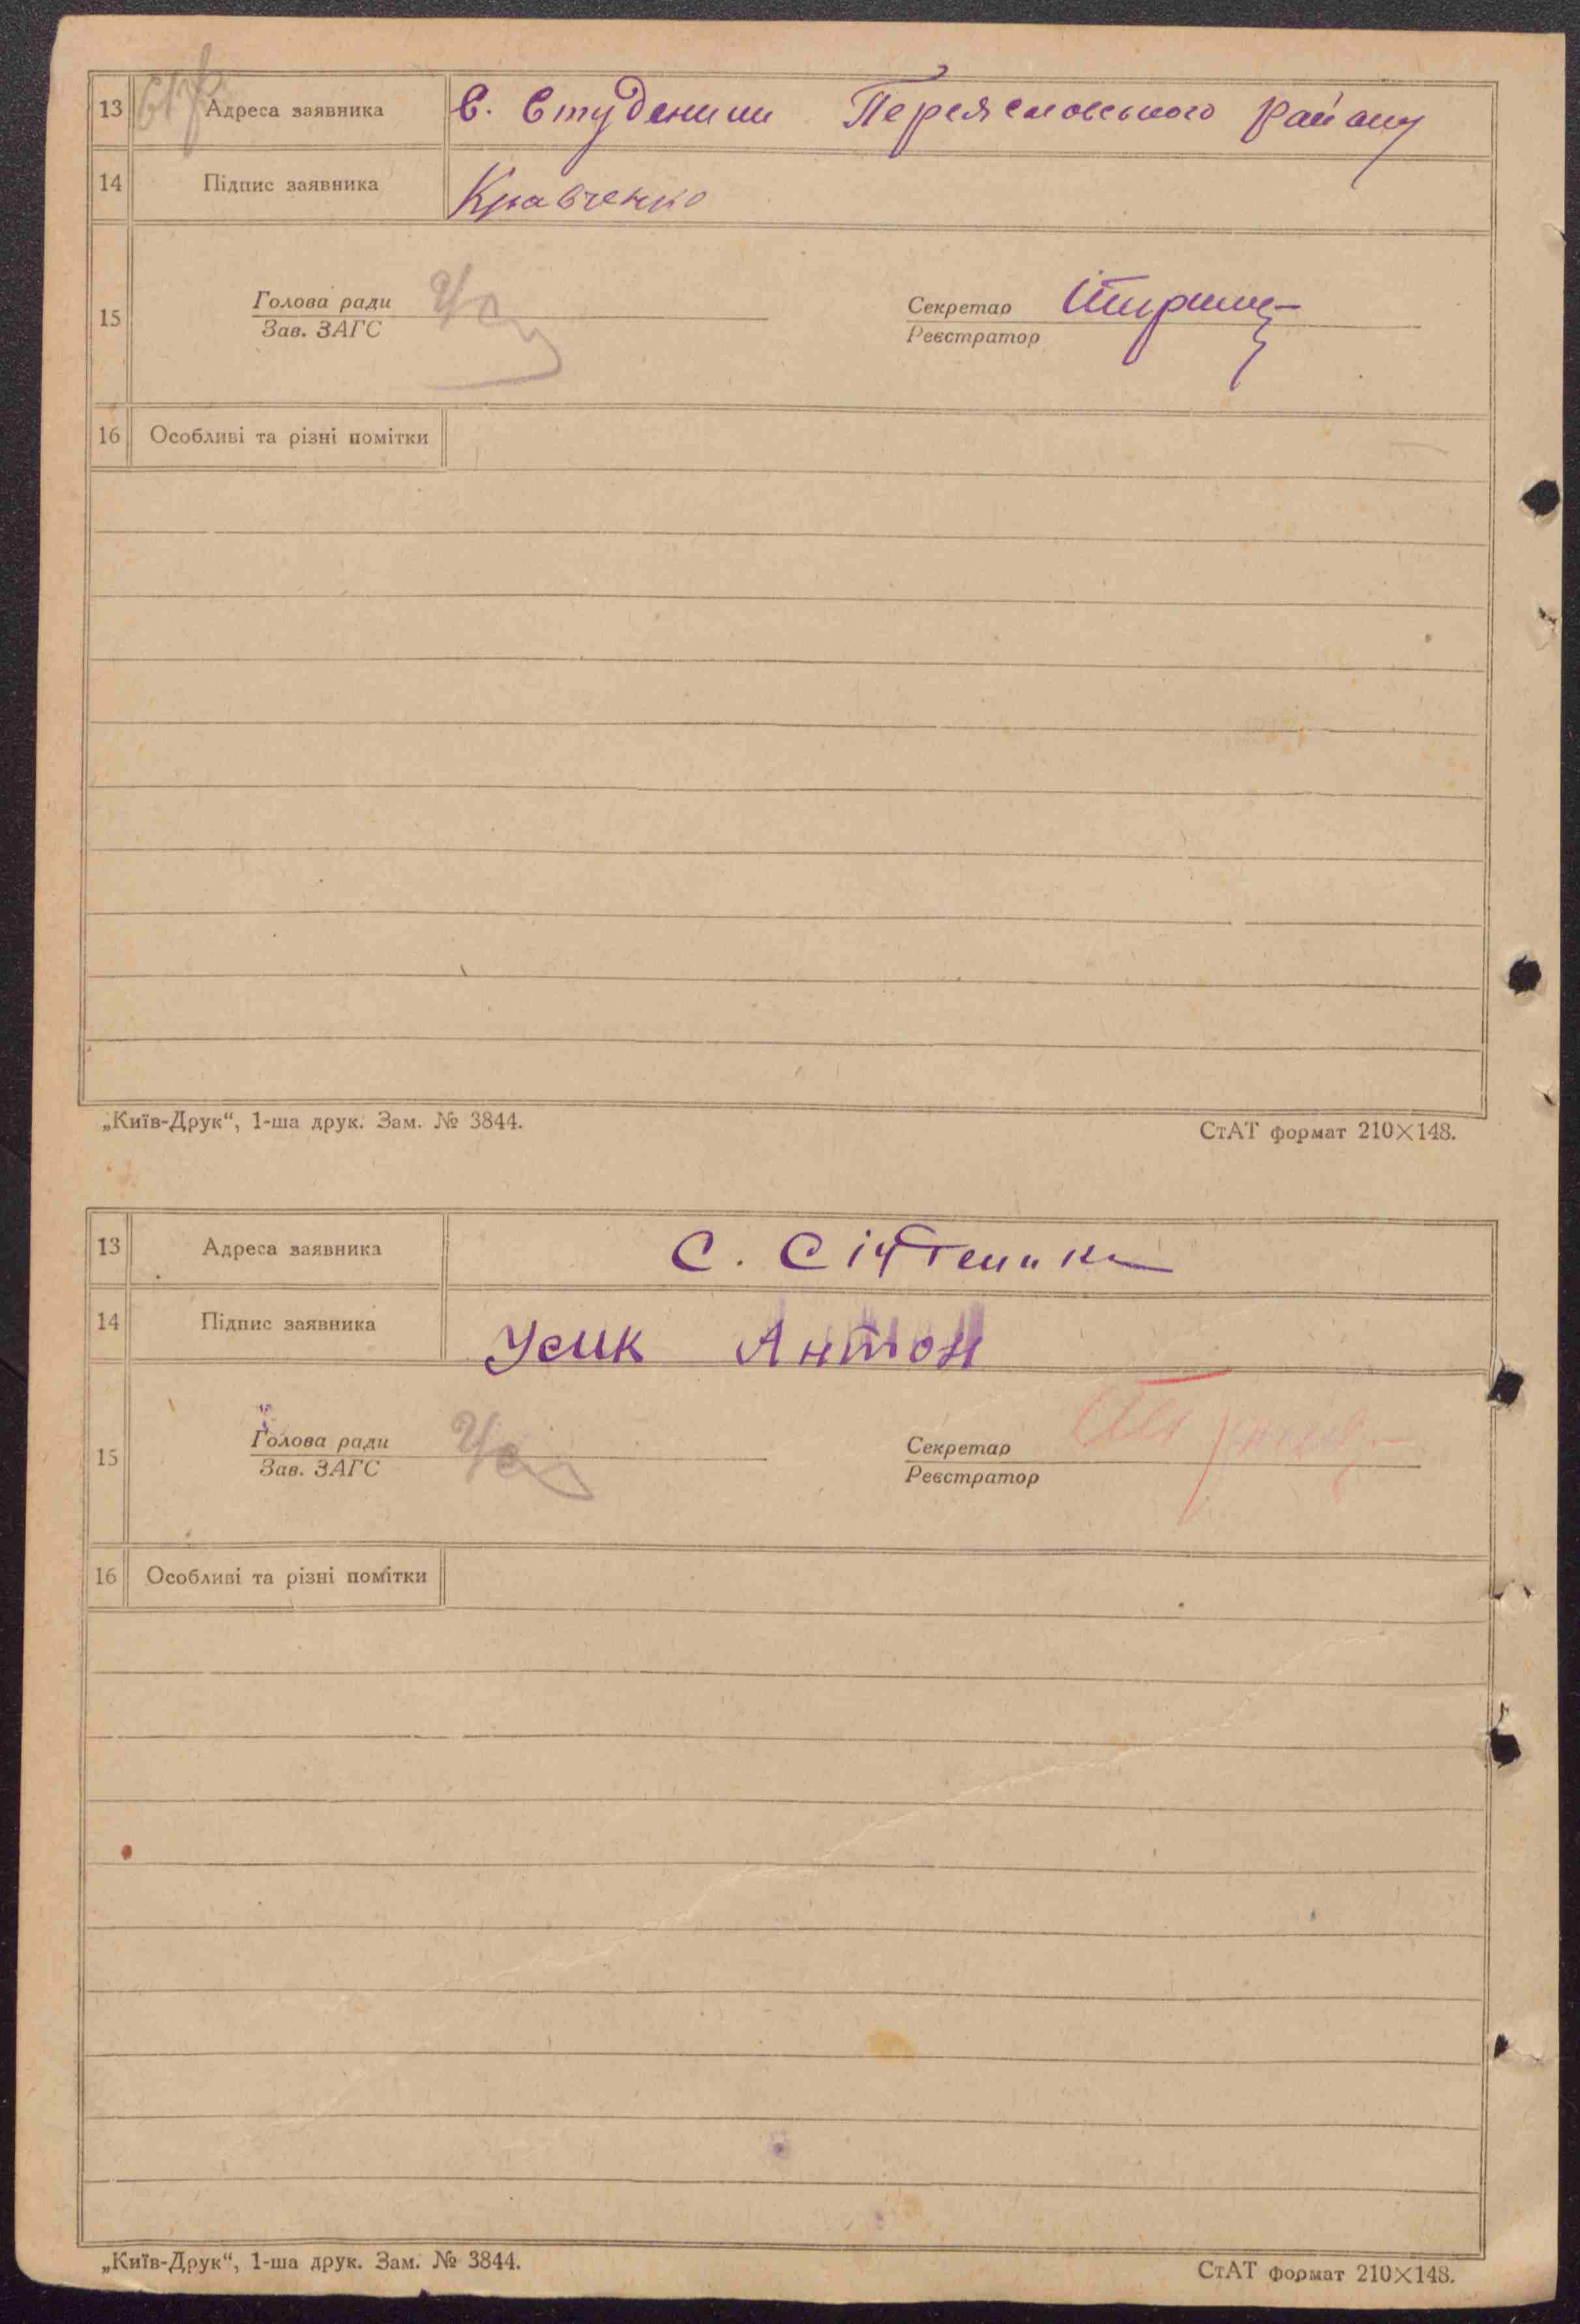 13 Адреса заявника С. Студеники Переяславського району
14 Підпис заявника Кравченко
15 Голова ради Секретар
Зав. ЗАГС Реєстратор
16 Особливі та різні помітки
„Київ-Друк“, 1-ша друк. Зам. № 3844. СтАТ формат 210×148.
13 Адреса заявника С.
14 Підпис заявника Усик Антон
15 Голова ради Секретар
Зав. ЗАГС Реєстратор
16 Особливі та різні помітки
„Київ-Друк“, 1-ша друк. Зам. № 3844. СтАТ формат 210×148.